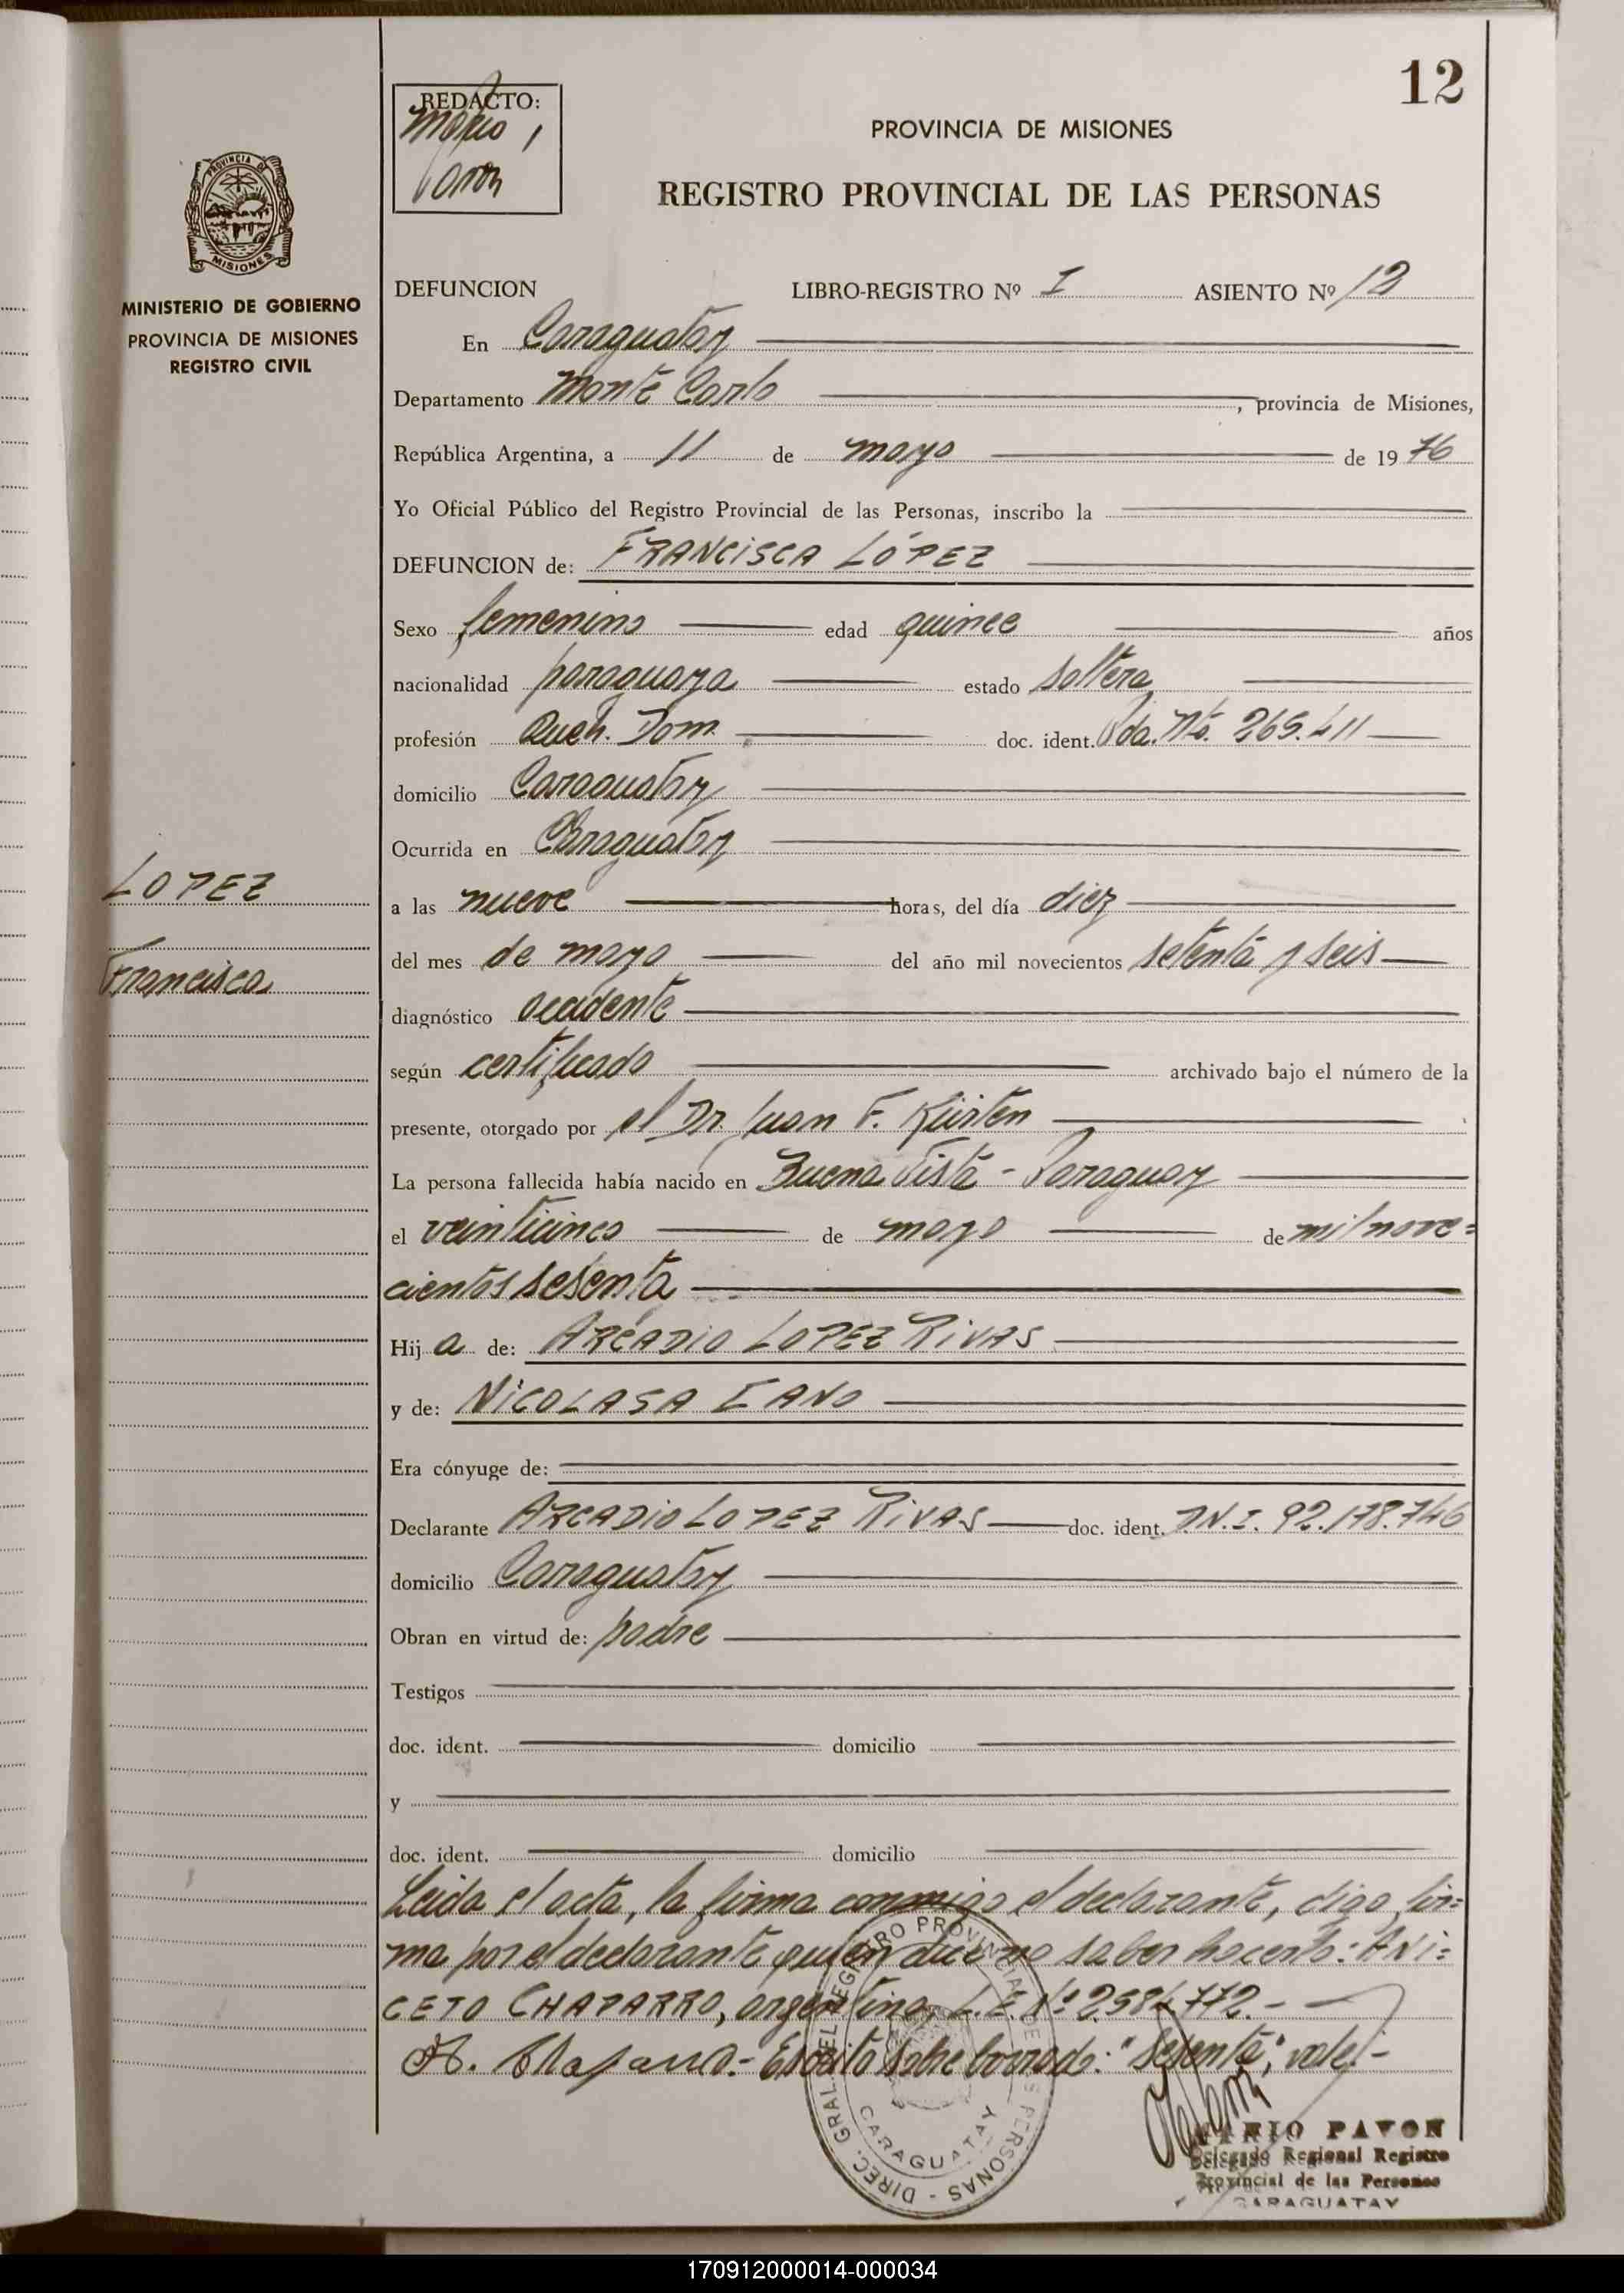 12
REDACTO:
Mario
Pavon
PROVINCIA DE MISIONES
REGISTRO PROVINCIAL DE LAS PERSONAS
PROVINCIA DE
MISIONES
MINISTERIO DE GOBIERNO
PROVINCIA DE MISIONES
REGISTRO CIVIL
LOPEZ
Francisca
DEFUNCION LIBRO-REGISTRO Nº I ASIENTO Nº 12
En Caraguatay
Departamento Monte Carlo, provincia de Misiones,
República Argentina, a 11 de mayo de 1976
Yo Oficial Público del Registro Provincial de las Personas, inscribo la
DEFUNCION de: FRANCISCA LÓPEZ
Sexo femenino edad quince años
nacionalidad paraguaya estado soltera
profesión Queh. Dom. doc. ident. Pda. Nto. 265.411
domicilio Caraguatay
Ocurrida en Caraguatay
a las nueve horas, del día diez
del mes de mayo del año mil novecientos setenta y seis
diagnóstico accidente
según certificado archivado bajo el número de la
presente, otorgado por el Dr. Juan F. Kürten
La persona fallecida había nacido en Buena Vista - Paraguay
el veinticinco de mayo de mil nove=
cientos sesenta
Hija de: ARCADIO LOPEZ RIVAS
y de: NICOLASA
Era cónyuge de:
Declarante ARCADIO LOPEZ RIVAS doc. ident. D.N.I. 92.178.746
domicilio Caraguatay
Obran en virtud de: padre
Testigos
doc. ident. domicilio
y
doc. ident. domicilio
Leida el acta, la firma conmigo el declarante, digo, fir=
ma por el declarante quien dice no saber hacerlo: ANI=
CETO CHAPARRO, argentino, L.E. Nº 2.584.772.-
Escrito sobre borrado: "sesenta", vale.-
DIREC. GRAL. DEL REGISTRO PROVINCIAL DE LAS PERSONAS -
CARAGUATAY
MARIO PAVON
Delegado Regional Registro
Provincial de las Personas
CARAGUATAY
170912000014-000034